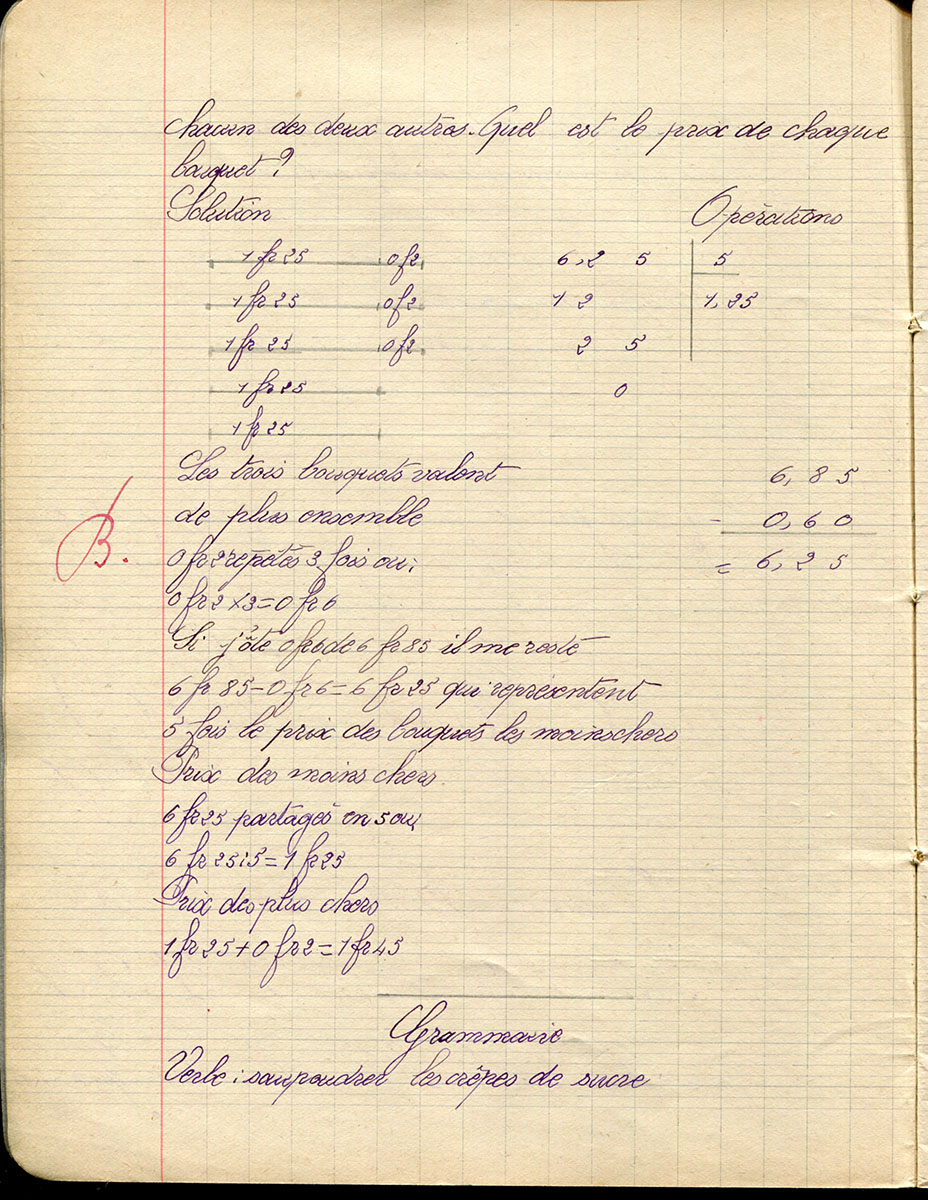 chacun des deux autres. Quel est le prix de chaque
bouquet ?
Solution
Opérations
1 fr 25 0f2
1 fr 25 0f2
1 fr 25 0f2
1 fr 25
1 fr 25
6,2 5 5
1 2 1,25
2 5
0
Les trois bouquets valent
de plus ensemble
0 fr 2 repétés 3 fois ou :
0 fr 2 x 3 = 0 fr 6
6,85
- 0,60
= 6,25
B.
Si j'ôte 0 fr 6 de 6 fr 85 il me reste
6 fr 85 - 0 fr 6 = 6 fr 25 qui représentent
5 fois le prix des bouquets les moins chers
Prix des moins chers
6 fr 25 partagés en 5 ou,
6 fr 25 : 5 = 1 fr 25
Prix des plus chers
1 fr 25 + 0 fr 2 = 1 fr 45
Grammaire
Verbe : saupoudrer les crêpes de sucre